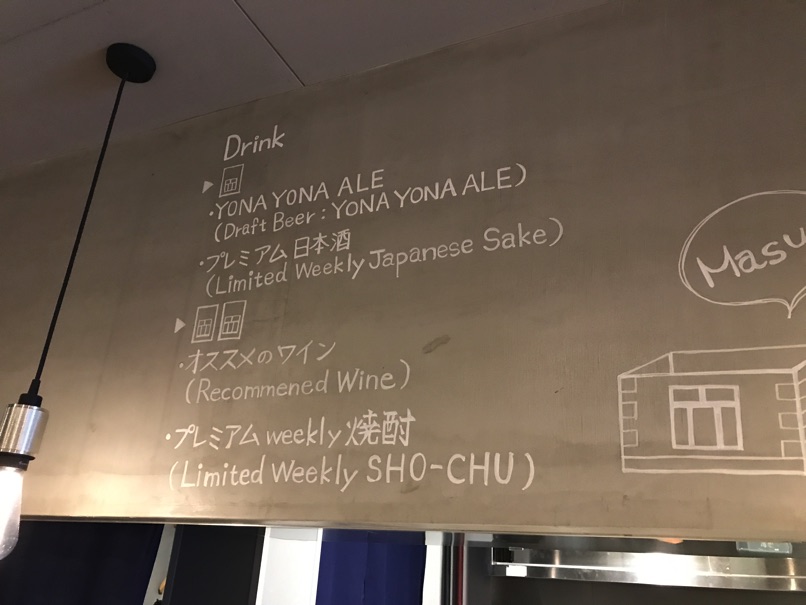 Drink
・YONA YONA ALE
(Draft Beer : YONA YONA ALE)
・プレミアム 日本酒
(Limited Weekly Japanese Sake)
・オススメのワイン
(Recommened Wine)
・プレミアム weekly 焼酎
(Limited Weekly SHO-CHU)
Masu